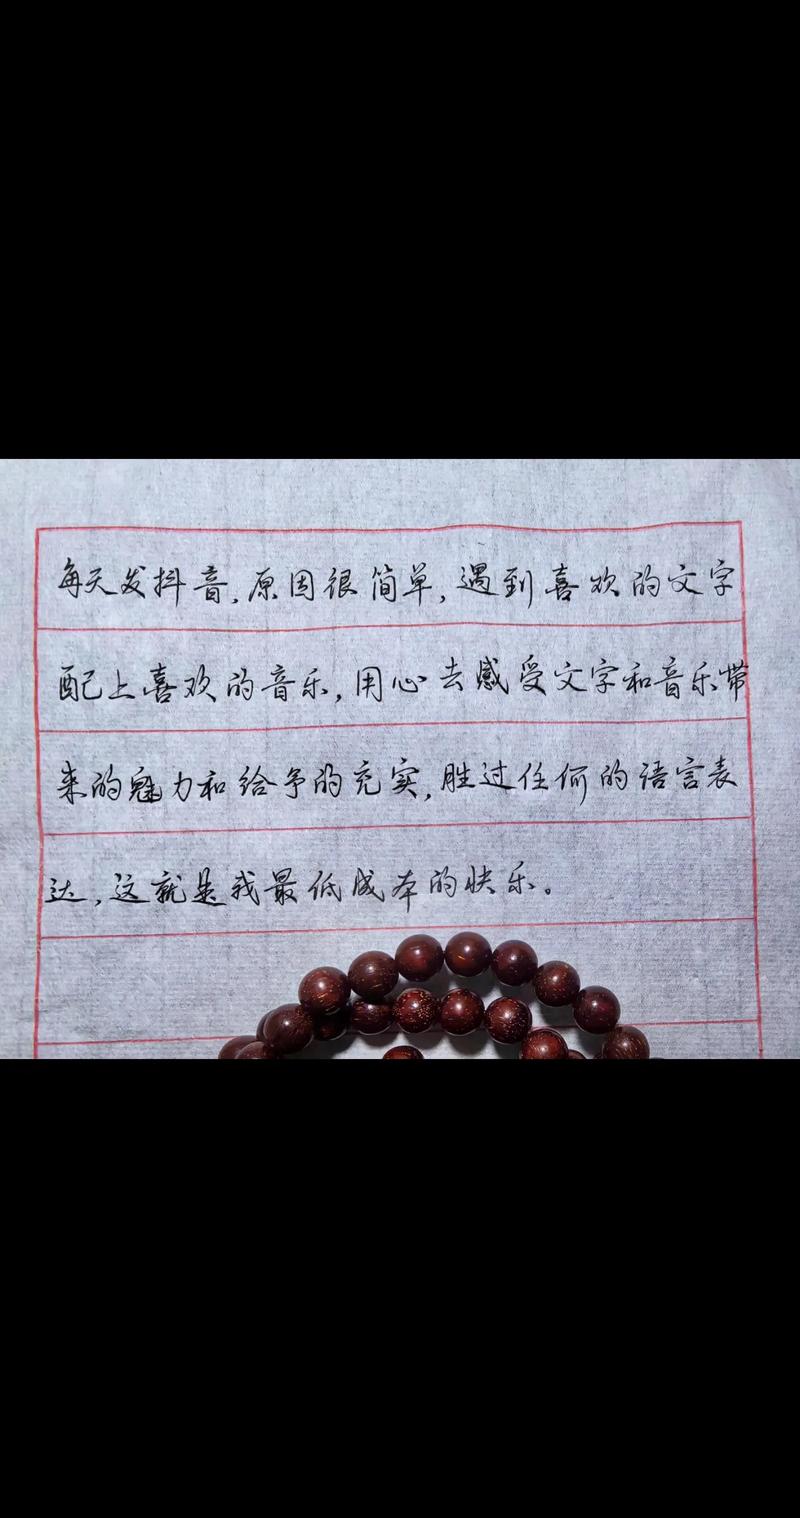 每天发抖音,原因很简单,遇到喜欢的文字
配上喜欢的音乐,用心去感受文字和音乐带
来的魅力和给予的充实,胜过任何的语言表
达,这就是我最低成本的快乐。